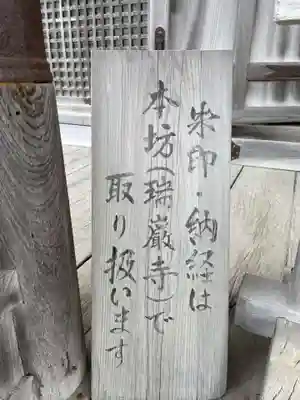 朱印・納経は
本坊(瑞巌寺)で
取り扱います